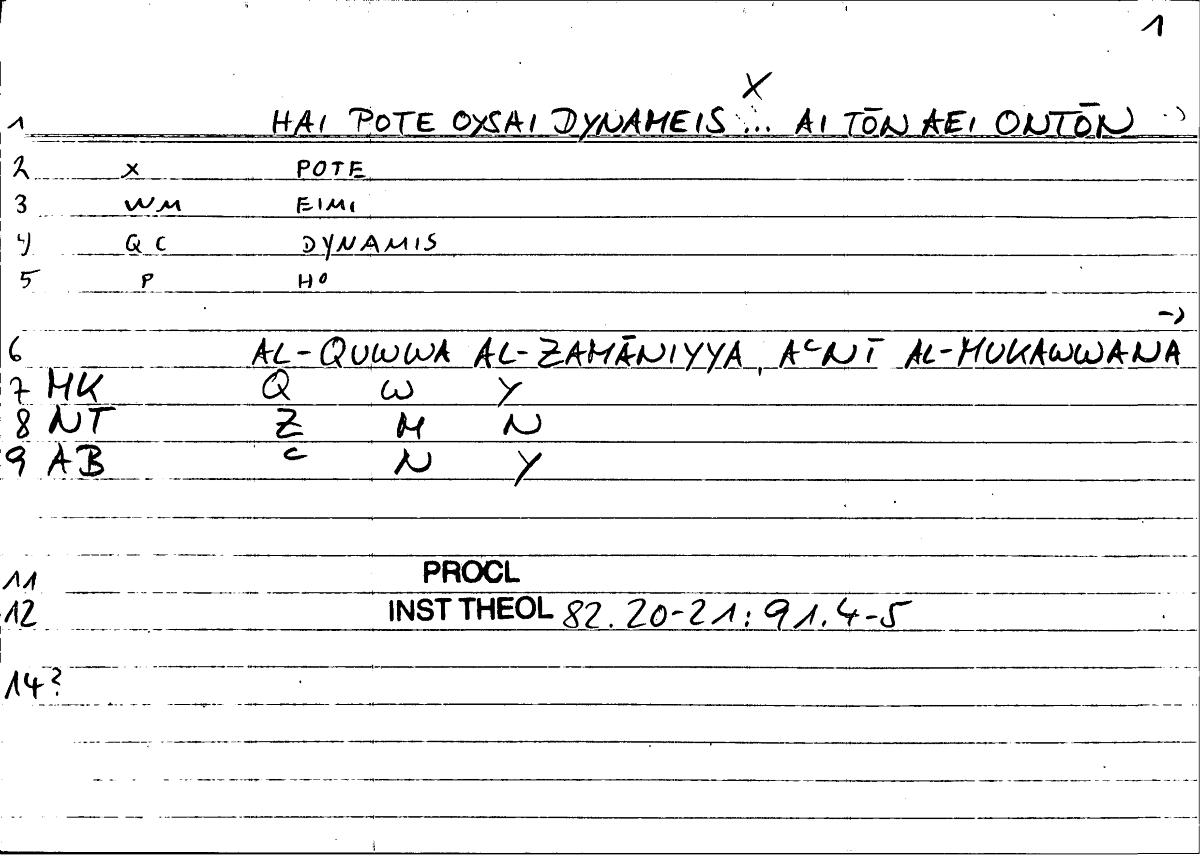 1
X
1 HAI POTE OYSAI DYNAMEIS ... AI TŌN AEI ONTŌN
2 X POTE
3 WM EIMI
4) QC DYNAMIS
5 P HO
->
6 AL-QUWWA AL-ZAMĀNIYYA, AʿNĪ AL-MUKAWWANA
7 MK Q W Y
8 NT Z M N
9 AB C N Y
11 PROCL
12 INST THEOL 82. 20-21: 91.4-5
14?